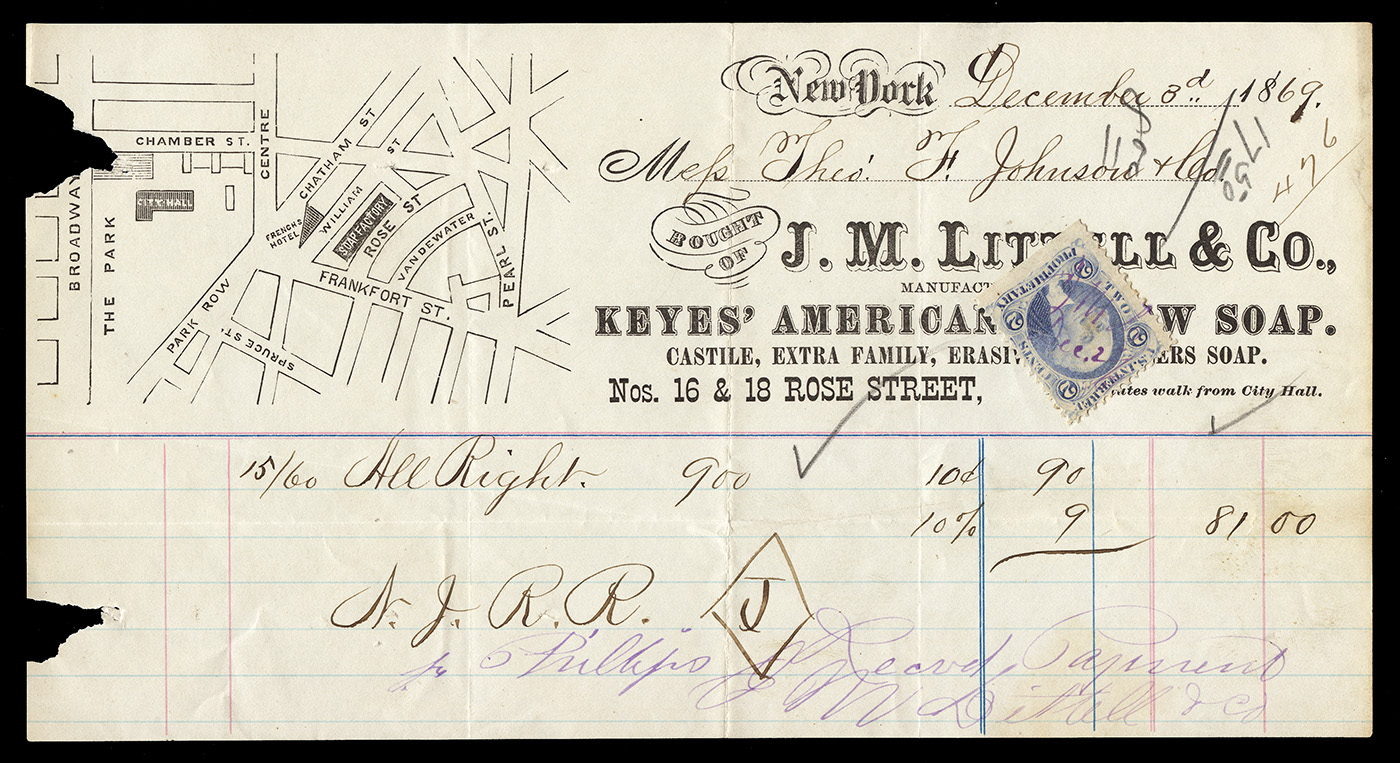 New York December 3d 1869.
Mess Theo. F. Johnson & Co
BOUGHT OF
J. M. LITTELL & CO.,
MANUFACT
KEYES' AMERICAN W SOAP.
CASTILE, EXTRA FAMILY, ERASIV ERS SOAP.
Nos. 16 & 18 ROSE STREET, utes walk from City Hall.
CHAMBER ST.
CENTRE
CHATHAM ST
ST
WILLIAM
CITY HALL
BROADWAY
THE PARK
FRENCHS HOTEL
SOAP FACTORY
ROSE ST
VANDEWATER
PEARL ST.
FRANKFORT ST.
PARK ROW
SPRUCE ST.
PROPRIETARY
TWO
CENTS
U.S. INTER. REV.
2
2
2
2
Dec. 2
1750
476
15/60 All Right. 900 10¢ 90
10% 9 81 00
N. J. R. R. J
Phillips Recvd Payment
J M Littell & Co